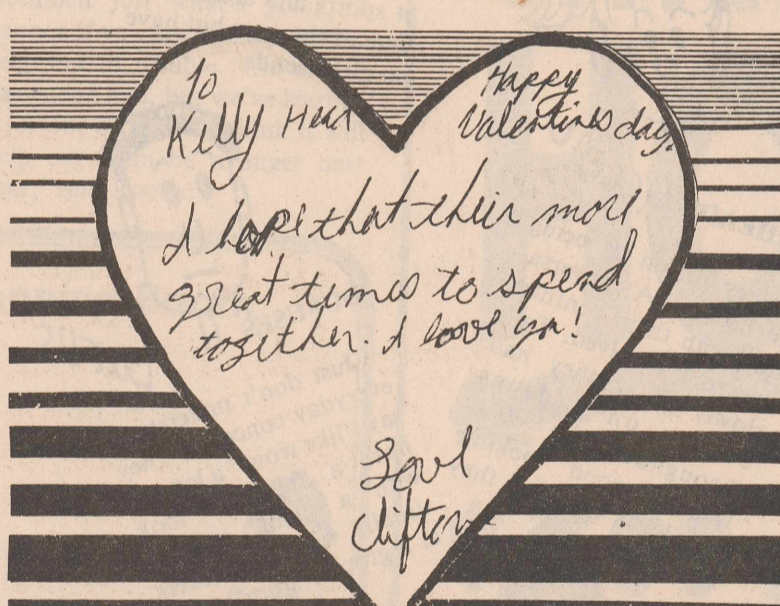 To
Kelly Head
Happy
Valentines day.
I hope that their more
great times to spend
together. I love you!
Love
Clifton